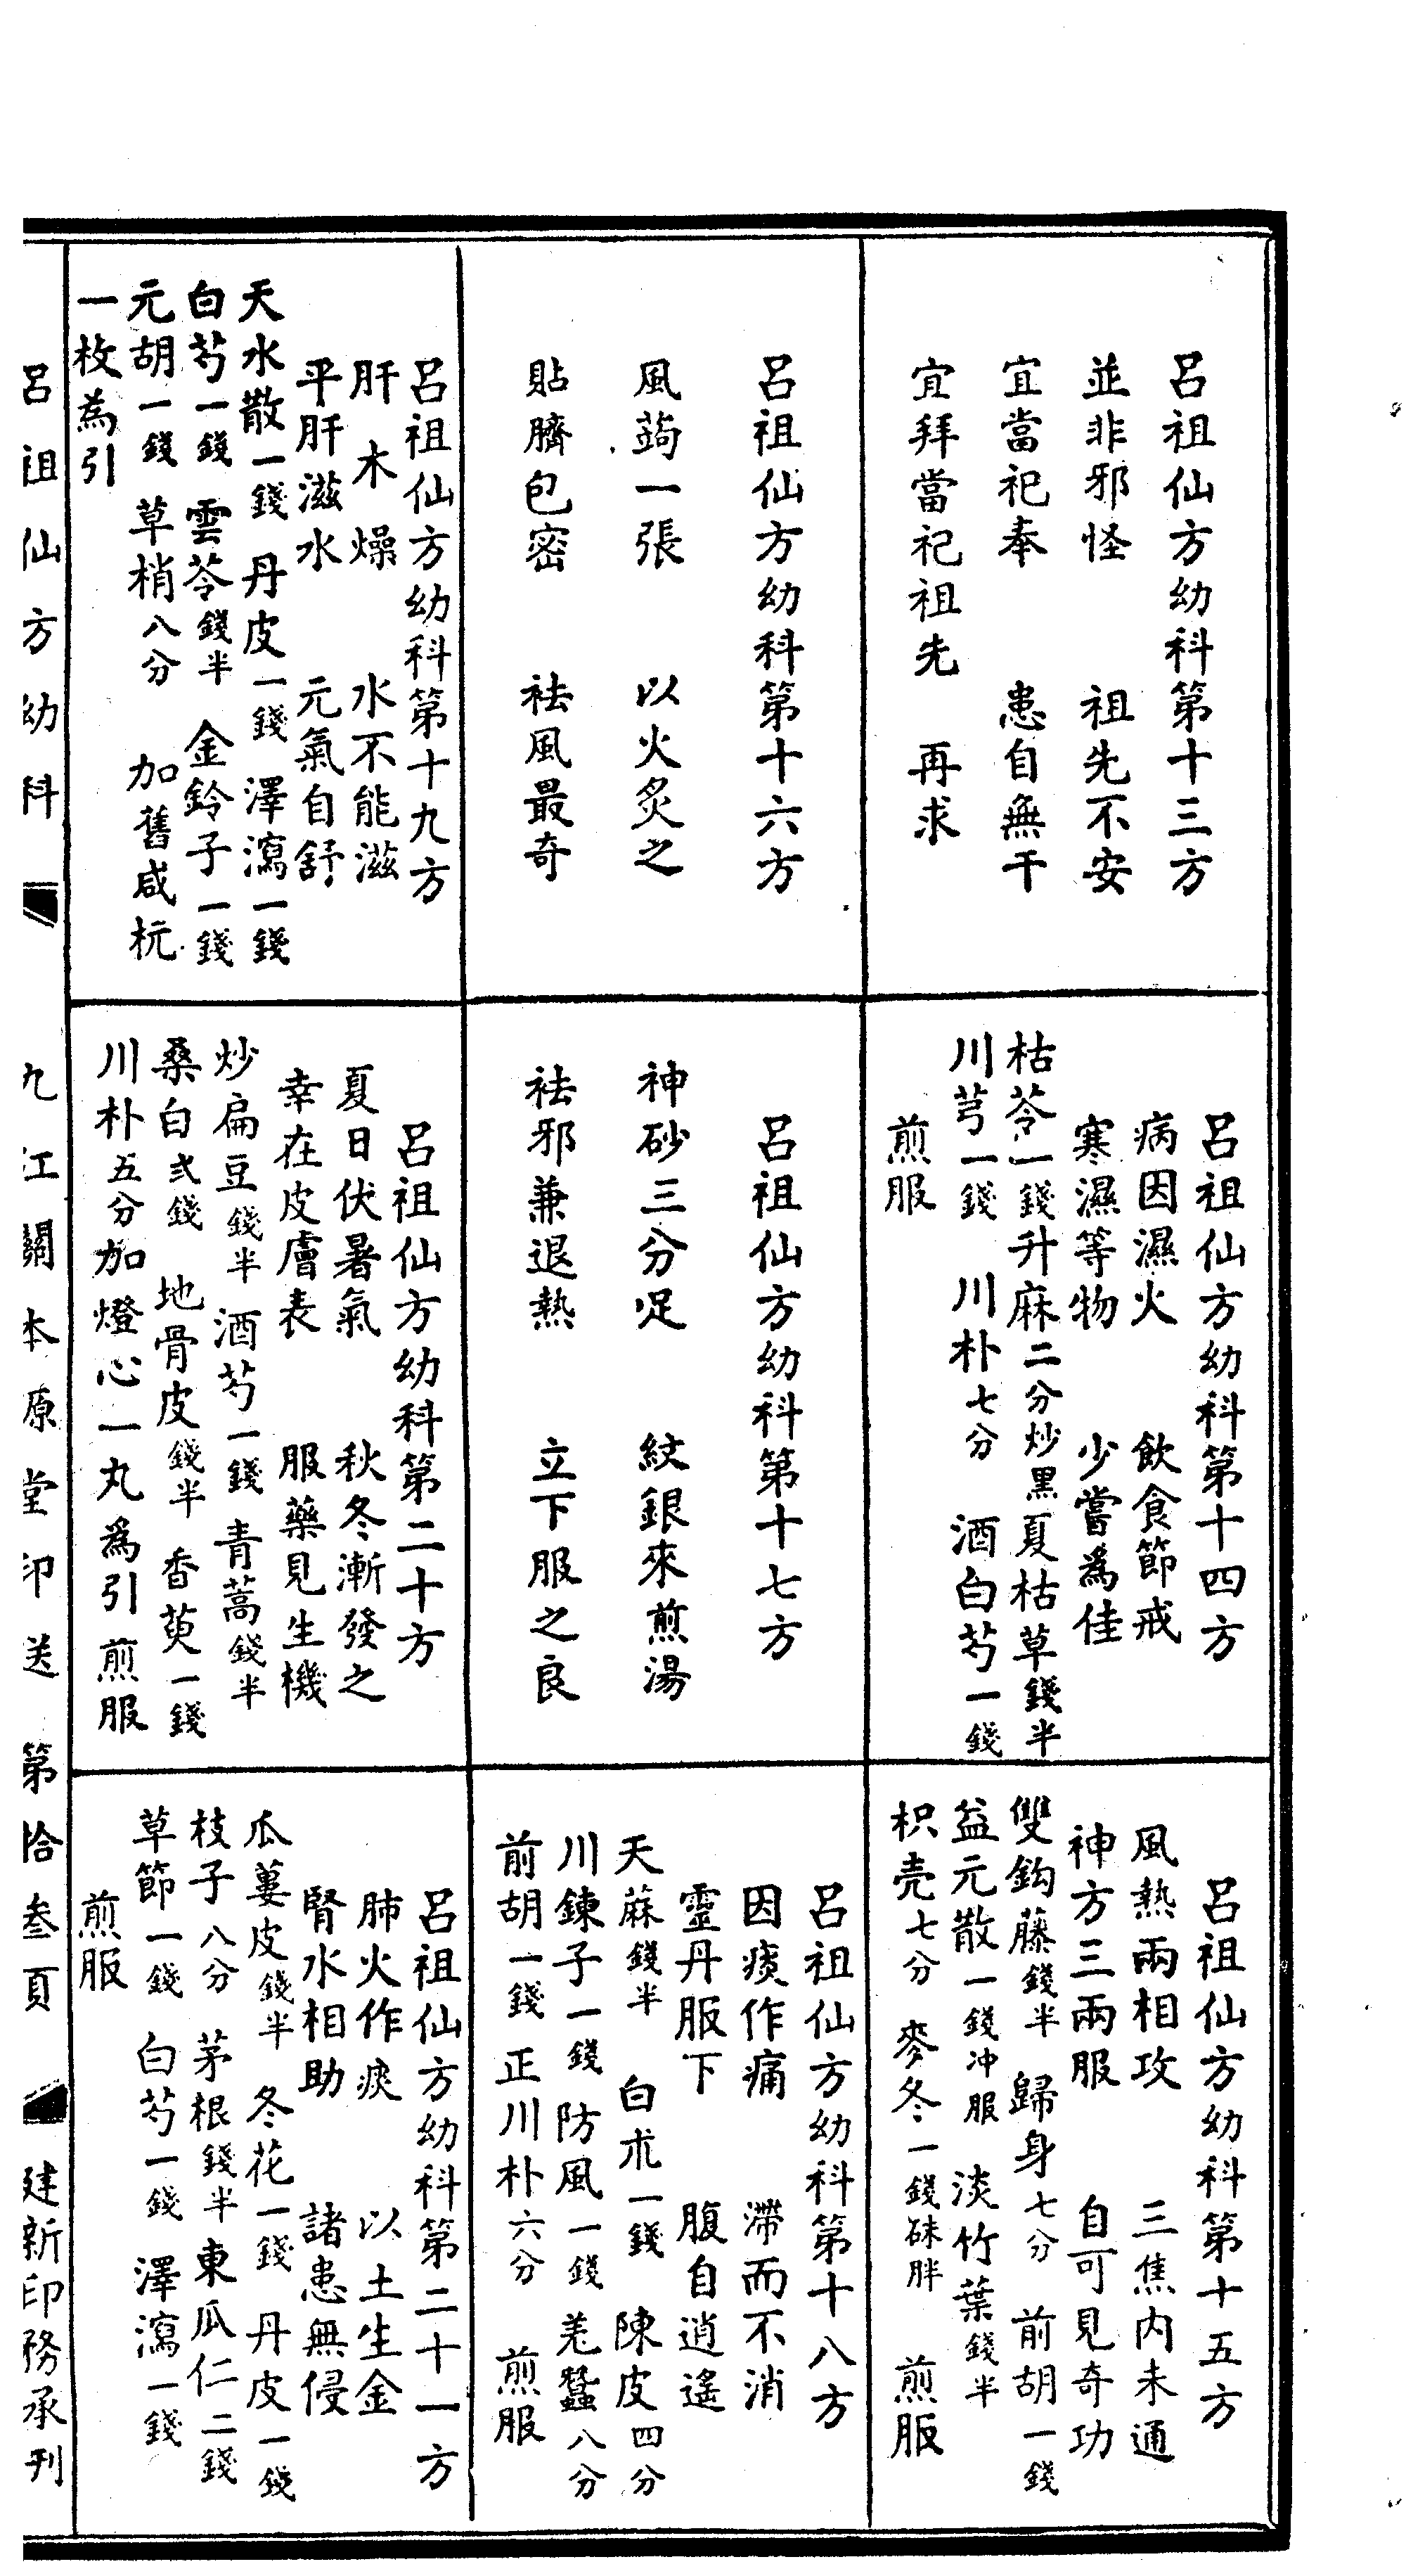 呂祖仙方幼科第十三方
並非邪怪　祖先不安
宜當祀奉　患自無干
宜拜當祀祖先　再求
呂祖仙方幼科第十四方
病因濕火　飲食節戒
寒濕等物　少嘗為佳
枯芩一錢升麻二分炒黑夏枯草錢半
川芎一錢　川朴七分　酒白芍一錢
煎服
呂祖仙方幼科第十五方
風熱兩相攻　三焦內未通
神方三兩服　自可見奇功
雙鈎藤錢半　歸身七分　前胡一錢
益元散一錢冲服　淡竹葉錢半
枳壳七分　麥冬一錢硃胖　煎服
呂祖仙方幼科第十六方
風蒟一張　以火炙之
貼臍包密　祛風最奇
呂祖仙方幼科第十七方
神砂三分足　紋銀來煎湯
祛邪兼退熱　立下服之良
呂祖仙方幼科第十八方
因痰作痛　滯而不消
靈丹服下　腹自逍遙
天蔴錢半　白朮一錢　陳皮四分
川鍊子一錢　防風一錢　羌蠶八分
前胡一錢　正川朴六分　煎服
呂祖仙方幼科第十九方
肝木燥　水不能滋
平肝滋水　元氣自舒
天水散一錢　丹皮一錢　澤瀉一錢
白芍一錢　雲苓錢半　金鈴子一錢
元胡一錢　草梢八分　加舊咸杬
一枚為引
呂祖仙方幼科第二十方
夏日伏暑氣　秋冬漸發之
幸在皮膚表　服藥見生機
炒扁豆錢半　酒芍一錢　青蒿錢半
桑白弍錢　地骨皮錢半　香萸一錢
川朴五分加燈心一丸為引　煎服
呂祖仙方幼科第二十一方
肺火作痰　以土生金
腎水相助　諸患無侵
瓜蔞皮錢半　冬花一錢　丹皮一錢
枝子八分　茅根錢半　東瓜仁二錢
草節一錢　白芍一錢　澤瀉一錢
煎服
呂祖仙方幼科　九江關本原堂印送　第拾叁頁　建新印務承刊